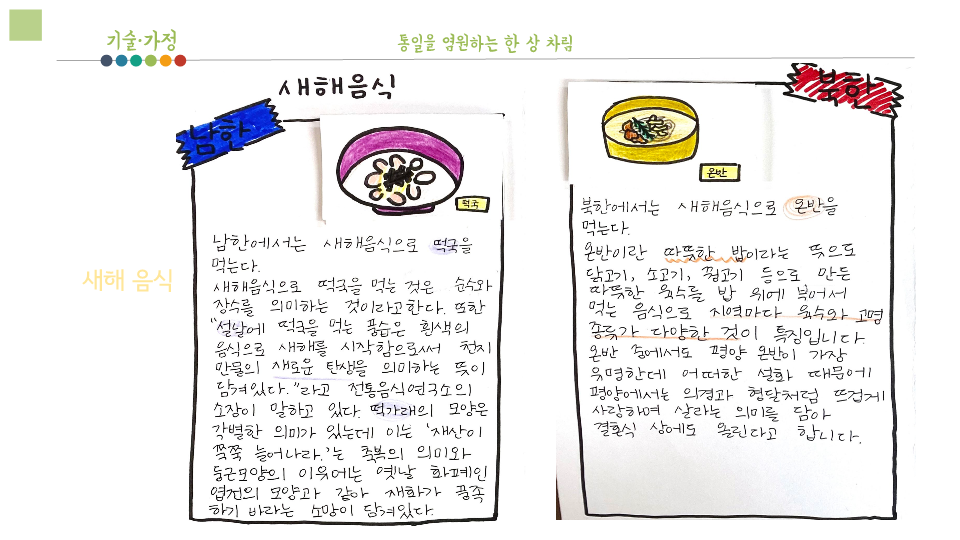 기술·가정
통일을 염원하는 한 상 차림
새해음식
남한
떡국
남한에서는 새해음식으로 떡국을
먹는다.
새해음식으로 떡국을 먹는 것은 순수와
장수를 의미하는 것이라고한다. 또한
"설날에 떡국을 먹는 풍습은 흰색의
음식으로 새해를 시작함으로써 천지
만물의 새로운 탄생을 의미하는 뜻이
담겨있다."라고 전통음식연구소의
소장이 말하고 있다. 떡가래의 모양은
각별한 의미가 있는데 이는 '재산이
쭉쭉 늘어나라.'는 축복의 의미와
둥근모양의 이유에는 옛날 화폐인
엽전의 모양과 같아 재화가 풍족
하기 바라는 소망이 담겨있다.
새해 음식
북한
온반
북한에서는 새해음식으로 온반을
먹는다.
온반이란 따뜻한 밥이라는 뜻으로
닭고기, 소고기, 꿩고기 등으로 만든
따뜻한 육수를 밥 위에 부어서
먹는 음식으로 지역마다 육수와 고명
종류가 다양한 것이 특징입니다.
온반 중에서도 평양 온반이 가장
유명한데 어떠한 설화 때문에
평양에서는 의경과 형달처럼 뜨겁게
사랑하며 살라는 의미를 담아
결혼식 상에도 올린다고 합니다.